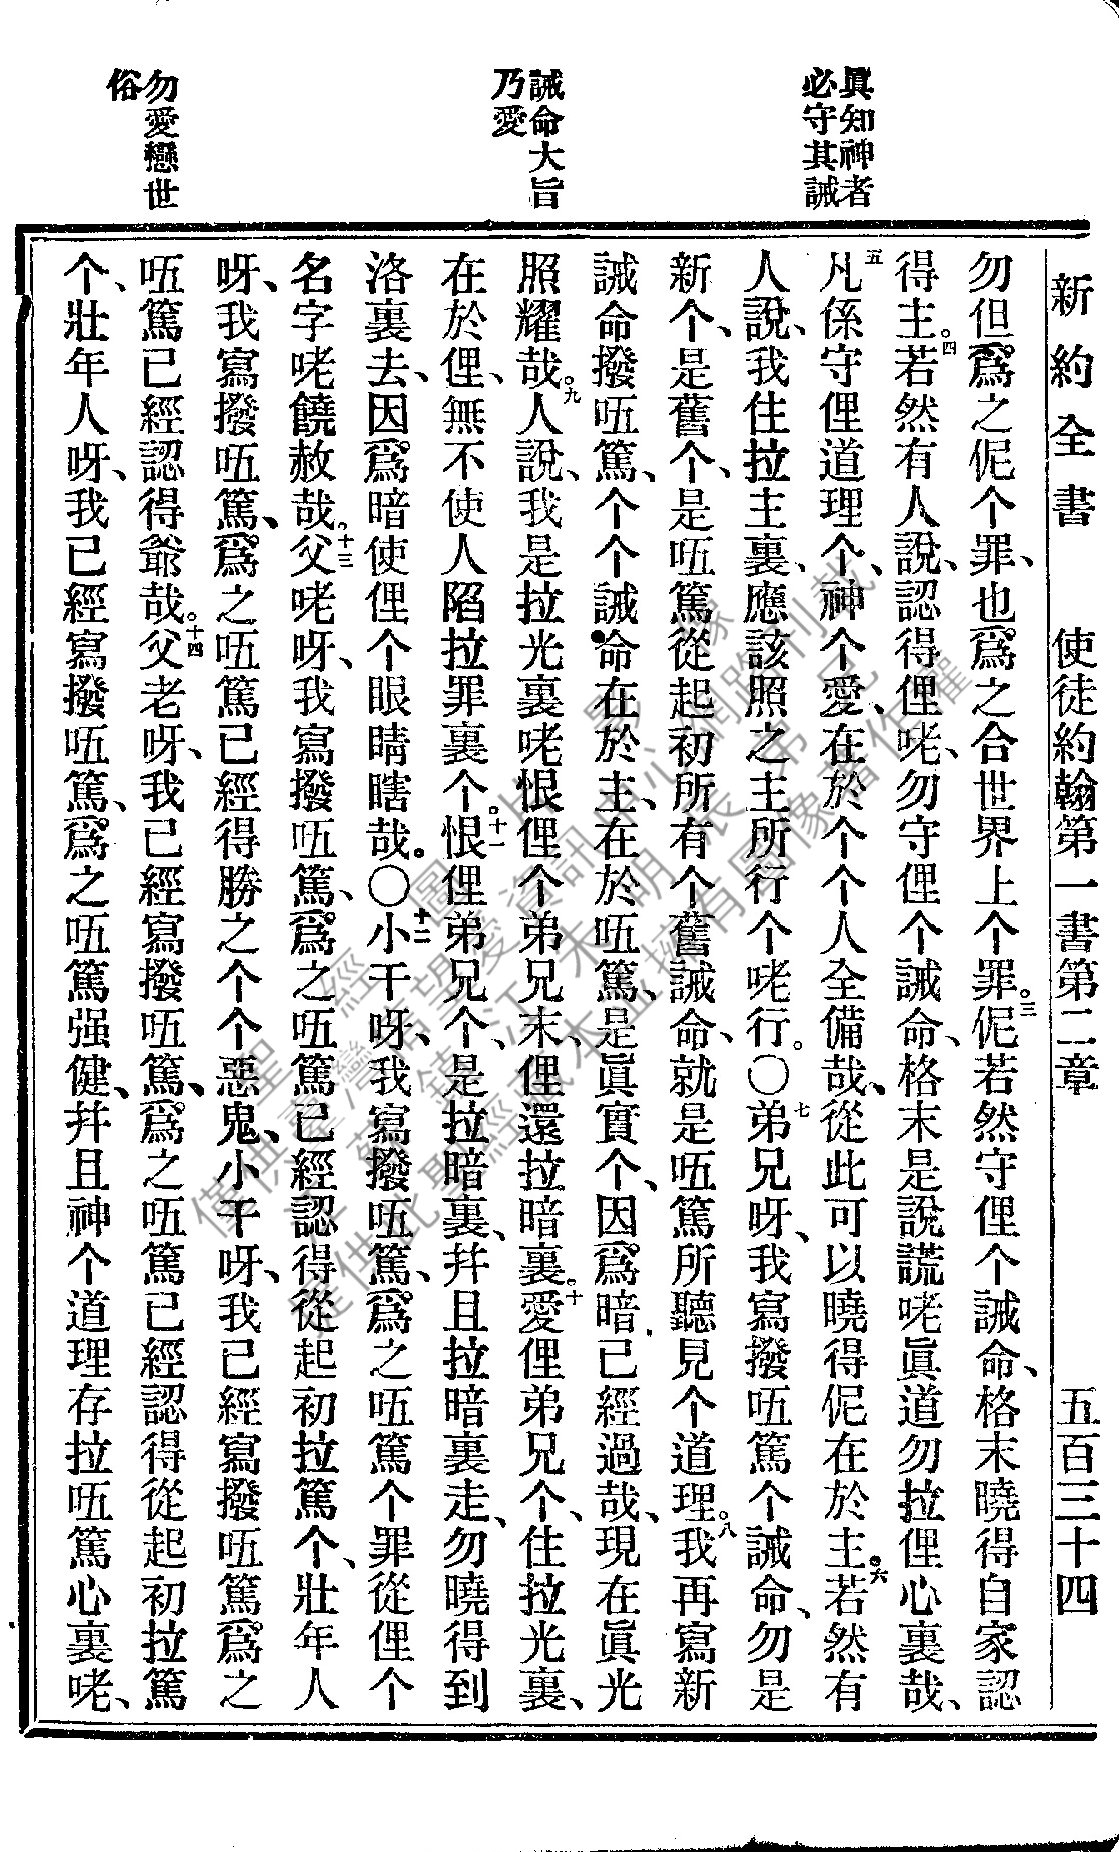 新約全書　使徒約翰第一書第二章　五百三十四
眞知神者
必守其誡
誡命大旨
乃愛
勿愛戀世
俗
勿但爲之伲个罪、也爲之合世界上个罪。三伲若然守俚个誡命、格末曉得自家認
得主。四若然有人說、認得俚咾、勿守俚个誡命、格末是說謊咾眞道勿拉俚心裏哉、
五凡係守俚道理个、神个愛、在於个个人全備哉、從此可以曉得伲在於主。六若然有
人說、我住拉主裏、應該照之主所行个咾行。〇七弟兄呀、我寫撥㕶篤个誡命、勿是
新个、是舊个、是㕶篤從起初所有个舊誡命、就是㕶篤所聽見个道理。八我再寫新
誡命撥㕶篤、个个誡命在於主、在於㕶篤、是眞實个、因爲暗已經過哉、現在眞光
照耀哉。九人說、我是拉光裏咾恨俚个弟兄末、俚還拉暗裏。十愛俚弟兄个、住拉光裏、
在於俚、無不使人陷拉罪裏个。十一恨俚弟兄个、是拉暗裏、幷且拉暗裏走、勿曉得到
洛裏去、因爲暗使俚个眼睛瞎哉。〇十二小干呀、我寫撥㕶篤、爲之㕶篤个罪從俚个
名字咾饒赦哉。十三父咾呀、我寫撥㕶篤、爲之㕶篤已經認得從起初拉篤个、壯年人
呀、我寫撥㕶篤、爲之㕶篤已經得勝之个个惡鬼、小干呀、我已經寫撥㕶篤爲之
㕶篤已經認得爺哉。十四父老呀、我已經寫撥㕶篤、爲之㕶篤已經認得從起初拉篤
个、壯年人呀、我已經寫撥㕶篤、爲之㕶篤强健、幷且神个道理存拉㕶篤心裏咾、